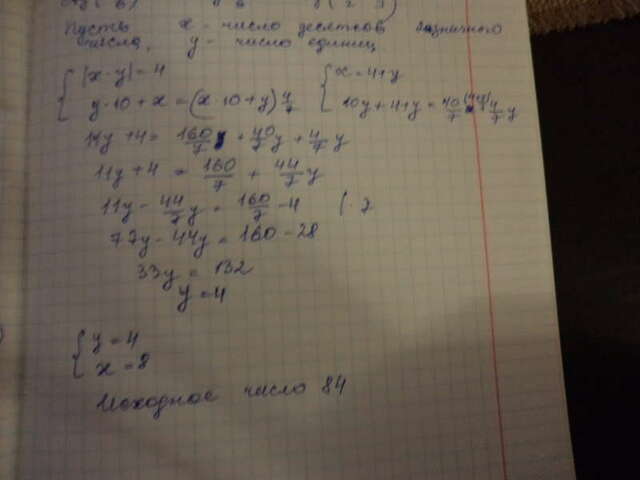 Пусть x - число десятков двузначного
числа, y - число единиц
{ |x-y|=4 { x=4+y
y·10+x=(x·10+y)4/7 10y+4+y=40/7(4+y)+4/7y
11y+4= 160/7 + 40/7y + 4/7y
11y+4 = 160/7 + 44/7y
11y - 44/7y = 160/7 - 4 |·7
77y-44y=160-28
33y=132
y=4
{ y=4
x=8
Исходное число 84